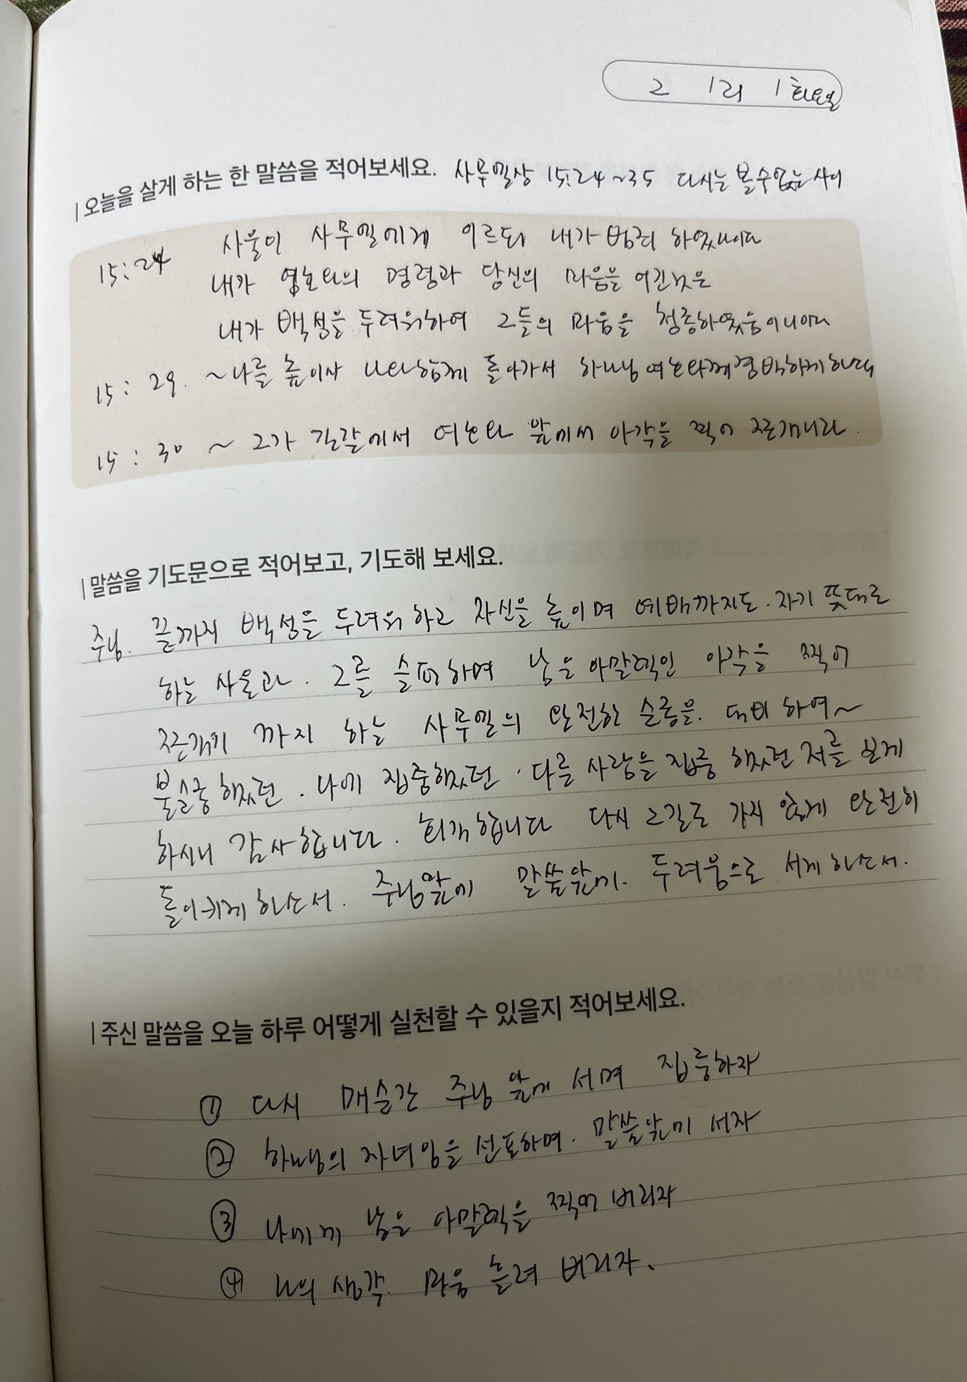 2 1리 1 화요일
오늘을 살게 하는 한 말씀을 적어보세요. 사무엘상 15:24~35 다시는 볼 수 없는 사이
15:24 사울이 사무엘에게 이르되 내가 범죄 하였나이다
내가 여호와의 명령과 당신의 마음을 어긴것은
내가 백성을 두려워하여 그들의 마음을 청종하였음이니이다
15:29. ~나를 높이사 나와함께 돌아가서 하나님 여호와께 경배하게 하다
15:30 ~ 그가 길갈에서 여호와 앞에서 아각을 찍어 쪼개니라.
말씀을 기도문으로 적어보고, 기도해 보세요.
주님. 끝까지 백성을 두려워 하고 자신을 높이며 예배까지도. 자기 뜻대로
하는 사울과. 그를 슬퍼하며 남은 아말렉인 아각을 찍어
쪼개기 까지 하는 사무엘의 완전한 순종을. 대비 하여~
불순종했던. 나에 집중했던. 다른 사람을 집중 했던 저를 보게
하시니 감사합니다. 회개합니다 다시 그길로 가지 않게 완전히
돌이키게 하소서. 주님앞에 말씀앞에. 두려움으로 서게 하소서.
주신 말씀을 오늘 하루 어떻게 실천할 수 있을지 적어보세요.
① 다시 매순간 주님 앞에 서며 집중하자
② 하나님의 자녀임을 선포하며. 말씀앞에 서자
③ 나에게 남은 아말렉을 찍어 버리자
④ 나의 생각. 마음 흘려 버리자.